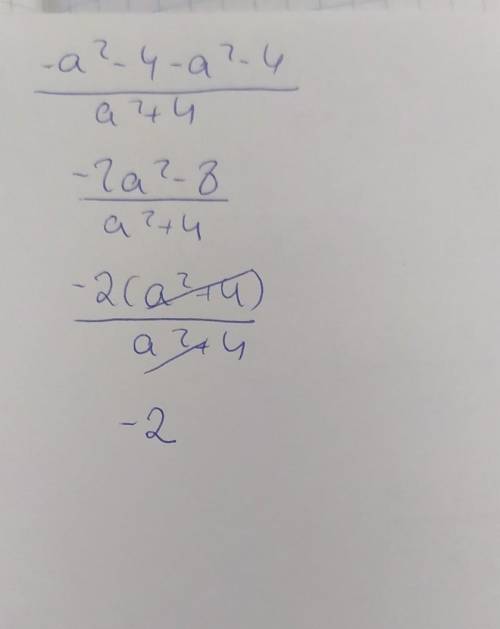 -a²-4-a²-4
a²+4
-2a²-8
a²+4
-2(a²+4)
a²+4
-2